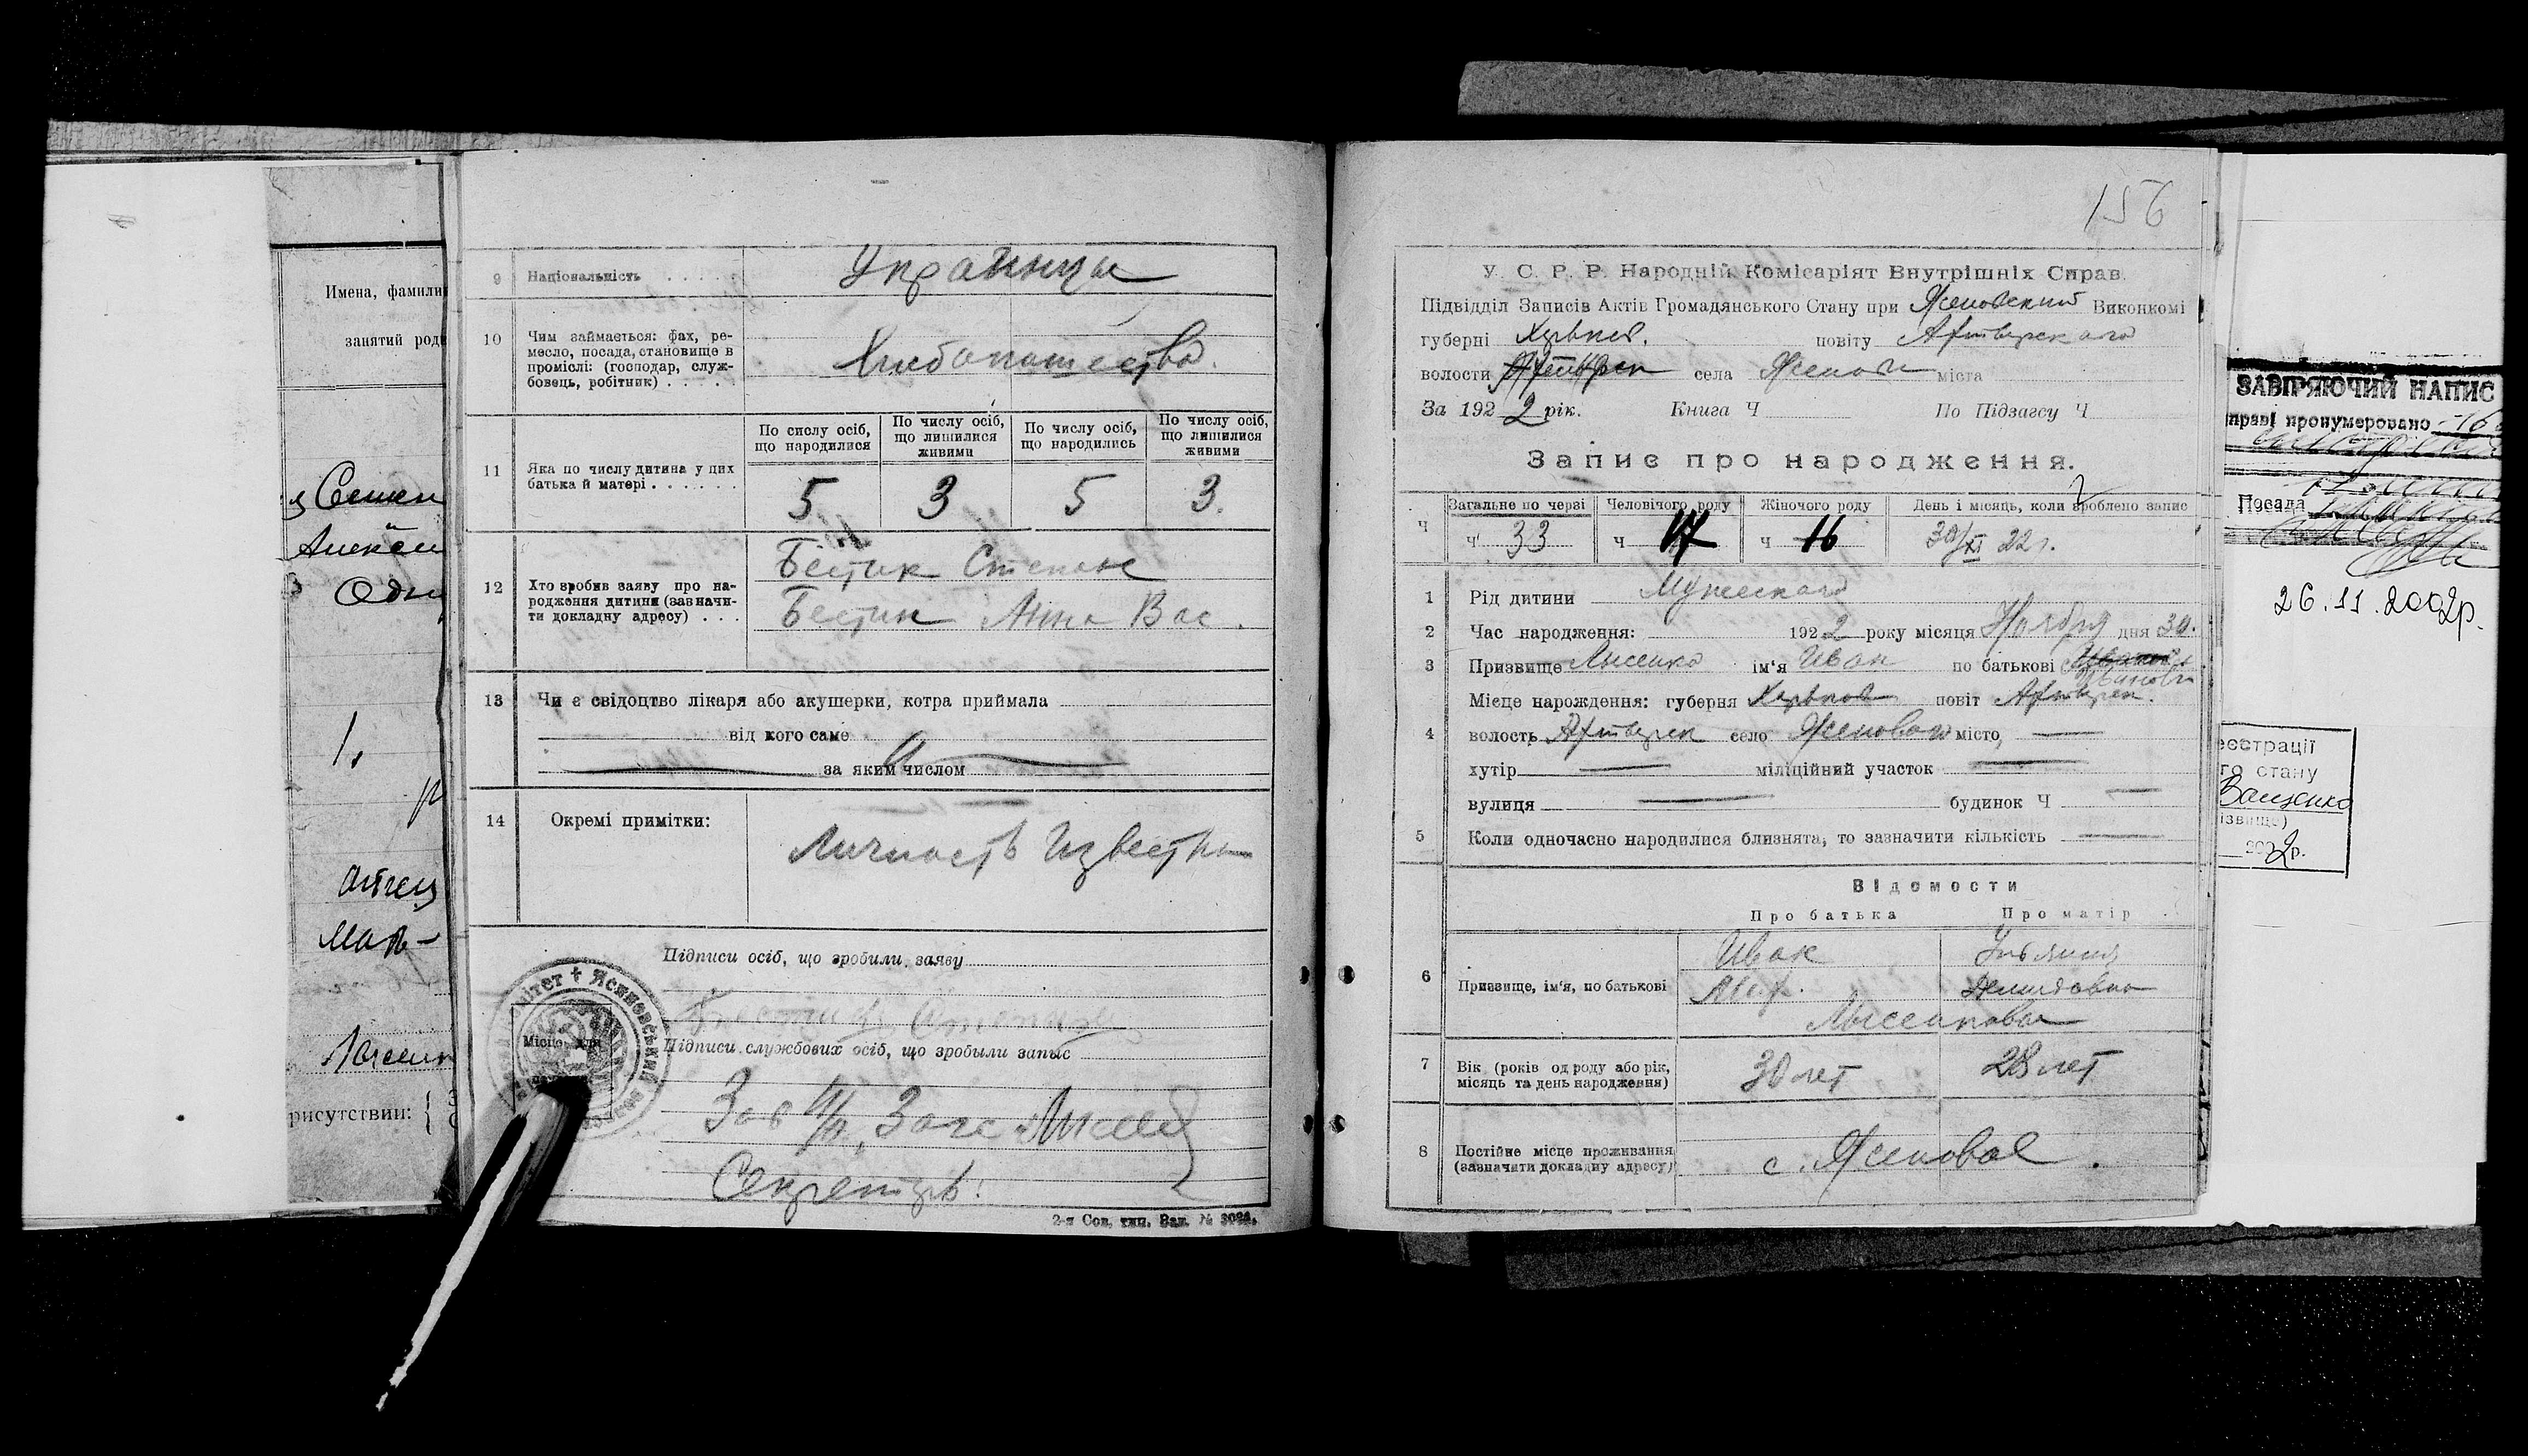 Имена, фамили
занятий роди
Семен
Алексей
Одн
1.
отец
Мать
Лысен
рисутствии:
9 Національність Украинцы
10 Чим займається: фах, ре-
месло, посада, становище в
проміслі: (господар, служ-
бовець, робітник) Хлебопашество.
По числу осіб, що народилися
По числу осіб, що лишилися живими
По числу осіб, що народились
По числу осіб, що лишилися живими
11 Яка по числу дитина у цих
батька й матері
5 3 5 3.
12 Хто вробив заяву про на-
родження дитини (зазначи-
ти докладну адресу)
Бестик Степан
Бестик Анна Вас.
13 Чи є свідоцтво лікаря або акушерки, котра приймала
від кого саме
за яким числом
14 Окремі примітки: Личность известна
Підписи осіб, що зробили заяву
Степан
Підписи службових осіб, що зробыли запыс
Місце для
Ясиновський
Зав П/о Загс
Секретарь:
2-я Сов. тип. Зак. №
156
У. С. Р. Р. Народній Комісаріят Внутрішніх Справ.
Підвідділ Записів Актів Громадянського Стану при Ясеновский Виконкомі
губерні Харьков. повіту Ахтырского
волости Ахтырск села Ясенов міста
За 1922 рік. Книга Ч По Підзагсу Ч
Запис про народження.
Загальне по черзі Человічого роду Жіночого роду День і місяць, коли вроблено запис
Ч Ч 33 Ч 17 Ч 16 30/XI 22 г.
1 Рід дитини Мужеского
2 Час народження: 1922 року місяця Ноября дня 30.
3 Призвище Лысенко ім'я Иван по батькові Иванов
Иванов
Місце нарождення: губерня Харьков повіт Ахтырск.
4 волость Ахтырск село Ясеновое місто,
хутір міліційний участок
вулиця будинок Ч
5 Коли одночасно народилися близнята, то зазначити кількість
Відомости
Про батька Про матір
6 Призвище, ім'я, по батькові
Иван Ульяния
Мих. Демидовна
Лысенкова
7 Вік (років од роду або рік,
місяць та день народження) 30 лет 28 лет
8 Постійне місце проживання
(зазначити докладну адресу) с. Ясеновое.
ЗАВІРЯЮЧИЙ НАПИС
праві пронумеровано
Посада
26.11.2002р.
еєстрації
го стану
Ващенко
ізвище)
2002р.